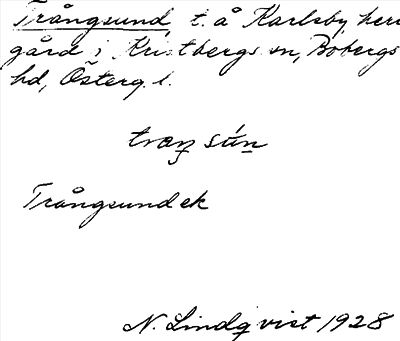 Trångsund, t. å Karlsby, herr
gård i Kristbergs sn, Bobergs
hd, Österg. l.
traŋ sún
Trångsund ek
N. Lindqvist 1928